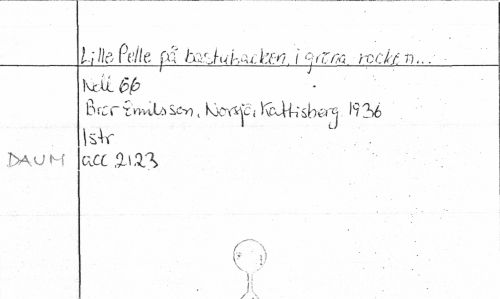 Lille Pelle på bastubacken, i gröna rocken...
Neli 66
Bror Emilsson, Norsjö, Kattisberg 1936
1 str
DAUM acc 2123